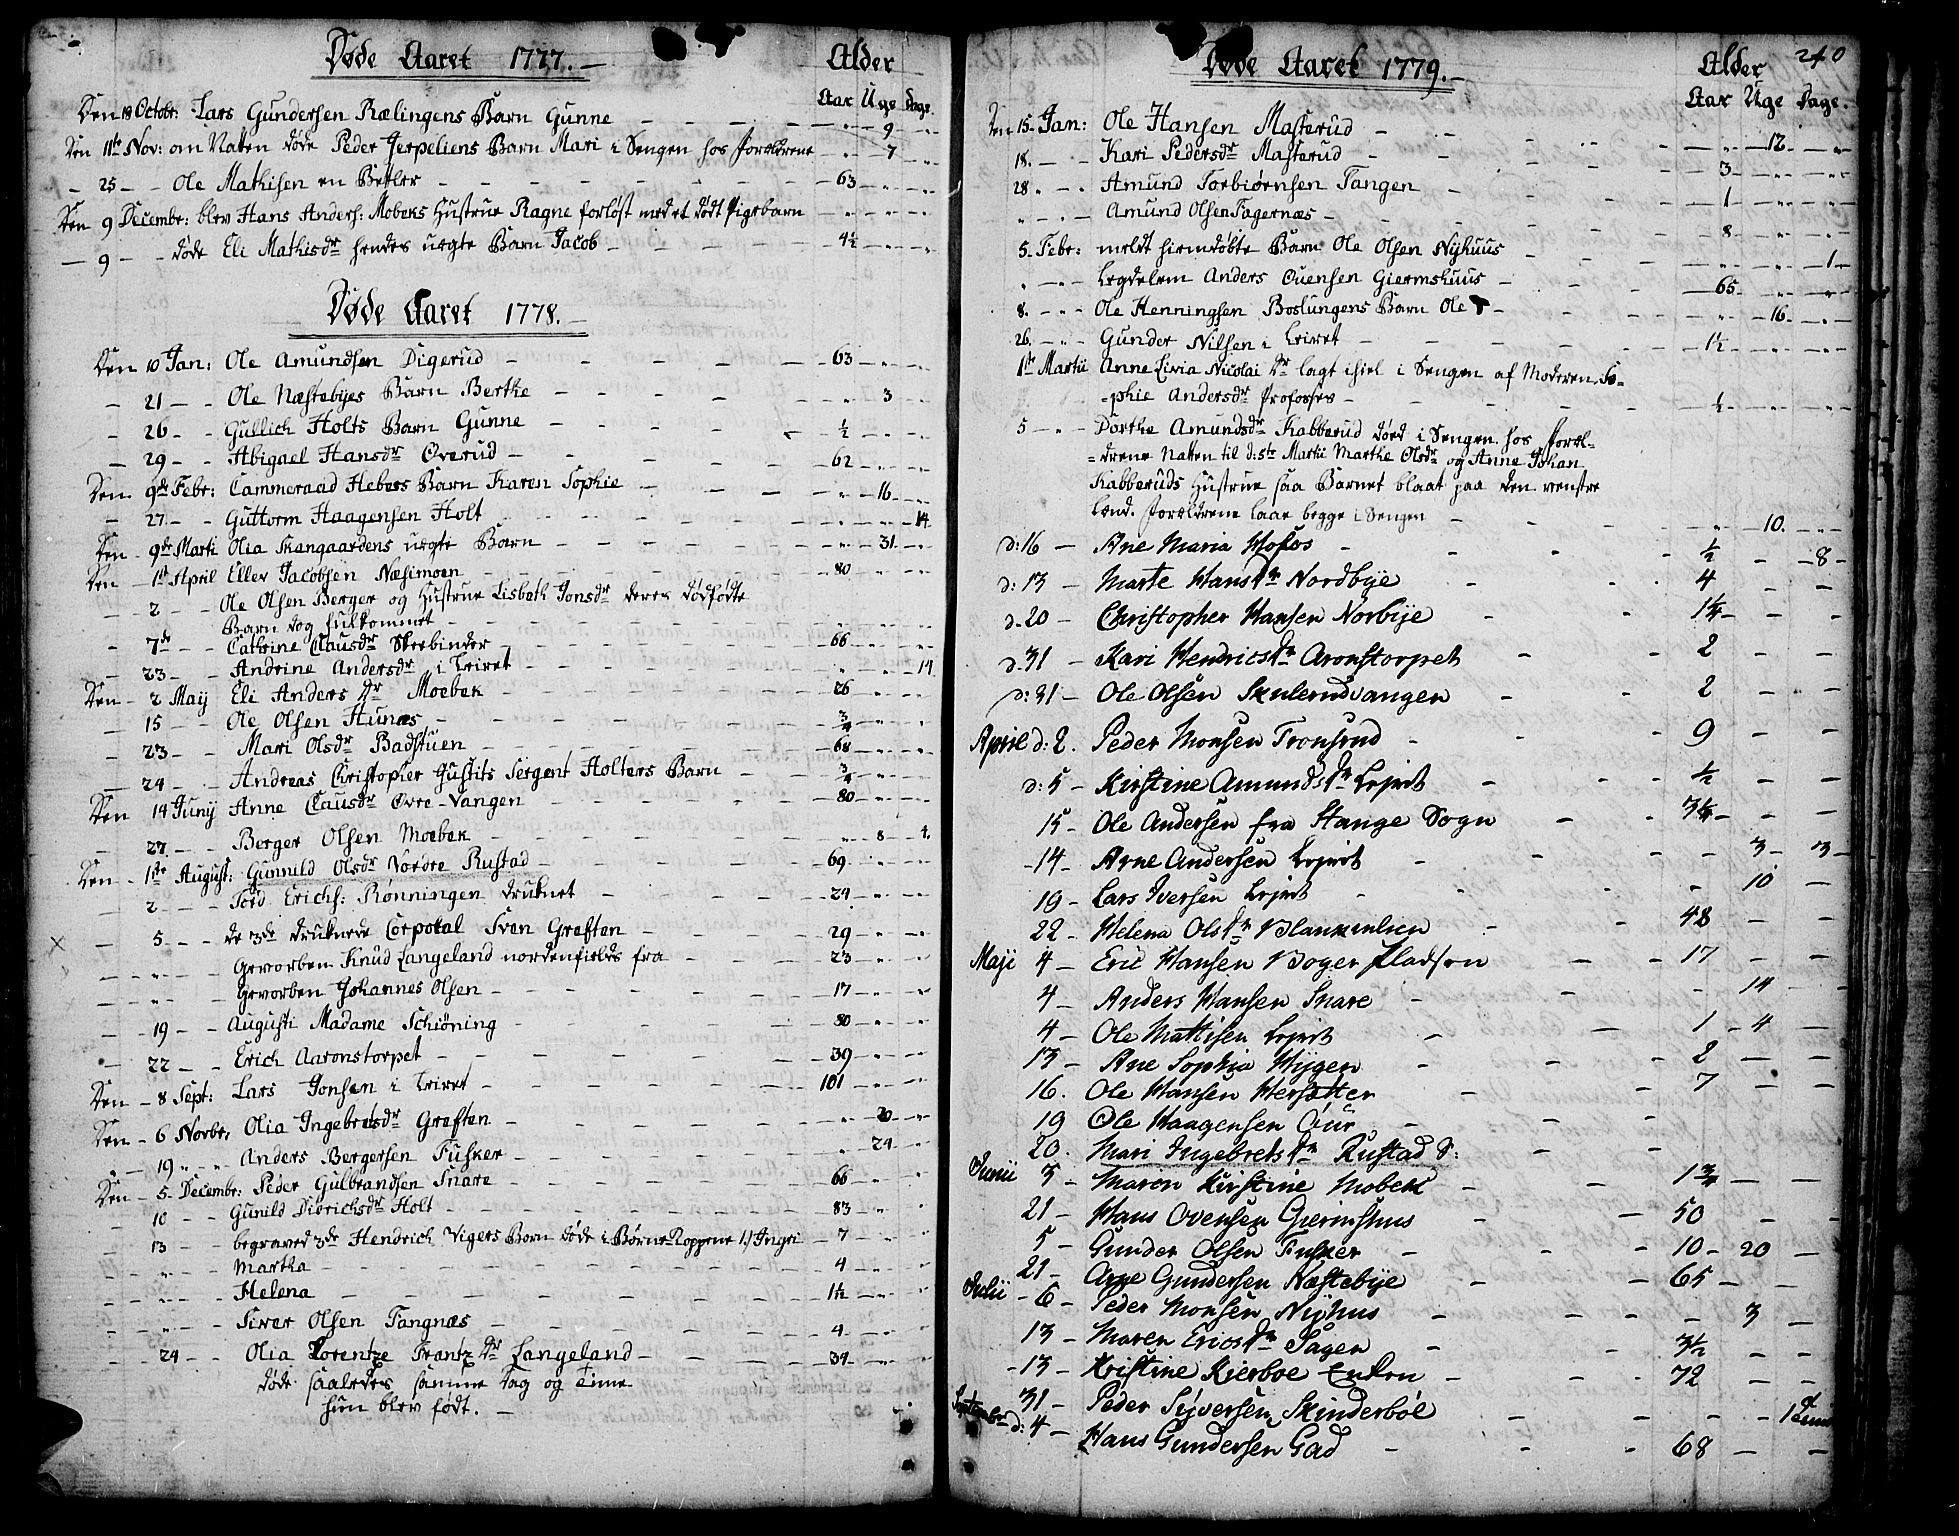 Døde Aaret 1777.
Alder
Aar Uge Dage
Den 18 Octobr: Lars Gundersen Rælingens Barn Gunne - 9 -
Den 11te Nov: om Natten døde Peder Jerpeliens Barn Mari i Sengen hos Forældrene - 7 -
- 25 - - Ole Mathisen en Betler - 63 - -
Den 9 Decembr: blev Hans Anders: Mobeks Hustrue Ragne forløst med et dødt Pigebarn
- 9 - - døde Eli Mathisdr hendes uægte Barn Jacob - 4½
Døde Aaret 1778.
Den 10 Jan: Ole Amundsen Digerud - 63
- 21 - - Ole Næstebyes Barn Berthe - 3
- 26 - - Gullich Holts Barn Gunne - ½
- 29 - - Abigael Hansdr Øverud - 62
Den 9de Febr: Cammeraad Hebers Barn Karen Sophie - 16
- 27 - - Guttorm Haagensen Holt - 14
Den 9de Marti Olia Skangaardens uægte Barn - 31
Den - 1st April Eller Jacobsen Næsimoen - 80
- 2 - - Ole Olsen Berger og Hustrue Lisbeth Jonsdr deres dødfødte
Barn dog fulkommet
- 7de - Cathrine Clausdr Skeebinder - 66
- 23 - - Andrine Andersdr i Leiret - 14
Den - 2 Maij Eli Anders dr Moebek - 26
- 15 - - Ole Olsen Hunæs - ¾
- 23 - - Mari Olsdr Badstuen - 68
- 24 - - Andreas Christopher Gustits Sergent Holters Barn - ¾
Den 14 Junij Anne Clausdr Øvre-Vangen - 80
- 27 - - Berger Olsen Moebek - 8 - 4.
Den - 1ste August: Gunnild Olsdr Nordre Rustad - 69
- 2 - - Tord Erichs: Rønningen druknet - 24
- 5 - - de 3de druknede Corporal Sven Græften - 29
- „ - - Gevorben Knud Langeland nordenfields fra - 23
- „ - - Gevorben Johannes Olsen - 17
- 19 - - Augusti Madame Schiöning - 80
- 22 - - Erich Aaronstorpet - 39
Den - 8 Sept: Lars Jonsen i Leiret - 101
Den - 6 Novbr: Olia Ingebretsdr Græften - 20
- 19 - - Anders Bergersen Fusker - 24
Den - 5 Decembr: Peder Gulbrandsen Snare - 66
- 10 - - Gunild Didrichsdr Holt - 83
- 13 - - begraved 3de Hendrich Vigers Born døde i Børne-Koppene 1.) Ingri - 7
- „ - - Martha - 4
- „ - - Helena - 1½
- „ - - Siver Olsen Tangnæs - 4
- 24 - - Olia Lorentze Frantz dr Langeland - 34
døde saaledes samme Dag og Time
hun blev født.
Døde Aaret 1779.
Alder 240
Aar Uge Dage.
Den 15 Jan: Ole Hansen Masterud - 12
18. - - Kari Pedersdr Masterud - 3
28 - - Amund Torbiørnsen Tangen - 1
„ - - Amund Olsen Fagernæs - 8
5. Febr: meldt hiemdøbte Barn Ole Olsen Nyhuus - 1
„ - - Legdelem Anders Ouensen Giermshuus - 65
8. - - Ole Henningsen Boslungens Barn Ole - 16
26. - - Gunder Nilsen i Leiret - 1½
1ste Martii Anne Livia Nicolai dr lagt ihiel i Sengen af Moderen So-
-phie Andersdr Profosses - ½
5 - - Dorthe Amundsdr Kabberud døed i Sengen hos Foræl-
-drene Natten til d: 5te Martii Marthe Olsdr og Anne Johan
Kabberuds Hustrue saa Barnet blaat paa den venstre
Lænd. Forældrene laae begge i Sengen - 10
d: 16 - Ane Maria Hofos - ½ - 8
d: 13 - Marte Hansdr Nordbye - 4
d. 20 - Christopher Hansen Norbije - 1¼
d. 31 - Kari Hendricsdr Aronstorpet - 2
d: 31 - Ole Olsen Skulerudvangen - 2
April d: 2. Peder Monsen Tronsrud - 9
d: 5 - Kirstine Amundsdr Lejret - ½
15 - Ole Andersen fra Stange Sogn - 3¼
14 - Arne Andersen Lejret - 3 - 3
19 - Lars Iversen Lejret - 10
22 - Helena Olsdr Blankenlien - 48
Maji 4 - Eric Hansen Boger Pladsen - 17
4 - Anders Hansen Snare - 14
4 - Ole Mattisen Lejret - 1 - 4
13 - Ane Sophia Hygen - 2
16. Ole Hansen Hersetter - 7
19 Ole Haagensen Ouur
20. Mari Ingebretsdr Rustad S:
Junii 3 - Maren Kirstine Mobek - 1¾
21 - Hans Ovensen Giermshus - 50
5 - Gunder Olsen Fusker - 10 - 20
21 - Arne Gundersen Næstebye - 65
Julii - 6 - Peder Monsen Nyhus - 3
13 - Maren Ericsdr Sagen - 3½
- 13 - Kristine Kierboe Enken - 72
31 - Peder Sijversen Skinderböl - 1
September d: 4 - Hans Gundersen Gad - 68